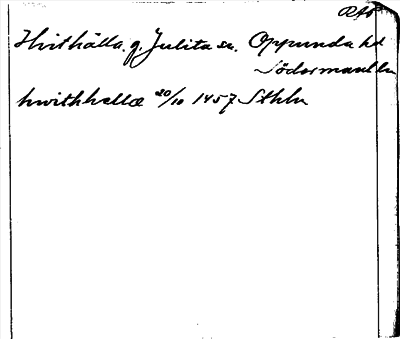 RAP
Hvithälla. g. Julita sn. Oppunda hd
Södermanl. ln
hwithhella 20/10 1457 Sthlm